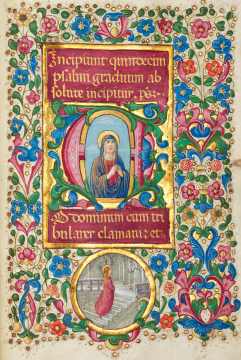 Incipiunt quindecim
psalmi graduum ab
solute incipitur. ps.
AD dominum cum tri
bularer clamaui: et